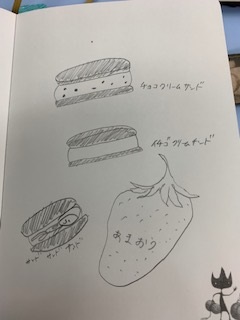 チョコクリームサンド
イチゴクリームサンド
サンド サンド サンド
あまおう